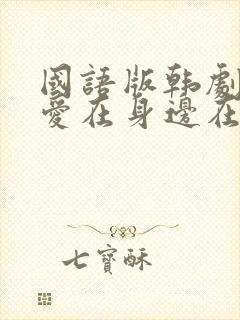 國語版韩劇
愛在身邊在
七寳酥